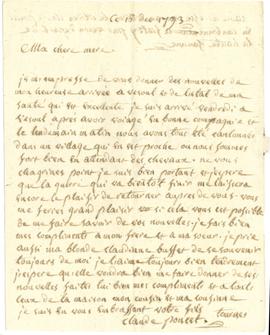 Ce 15 dec 1793
Ma chere mere
je m'empresse de vous donner des nouvelles de
mon heureuse arrivée a vesoul et de l'état de ma
santé qui est excellente je suis arrivé vendredi a
vesoul après avoir voiagé en bonne compagnie et
le lendemain matin nous avons tous été cantonner
dans un village qui en est proche ou nous sommes
fort bien en attendant des chevaux. ne vous
chagrinés point je suis bien portant et j'espere
que la guerre qui va bientôt finir me laissera
encore le plaisir de retourner auprès de vous.
me ferés grand plaisir si cela vous est possible
de me faire savoir de vos nouvelles. je fais bien
mes compliments a mon frere et a ma soeur je prie
aussi ma blonde claudine buffet de se souvenir
toujours de moi je l'aime toujours bien tendrement
j'espere qu'elle voudra bien me faire donner de ses
nouvelles faites lui bien mes compliments et a tout
ceux de la maison mon cousin et ma cousine
je suis en vous embrassant votre fils
claude poncet
tournés